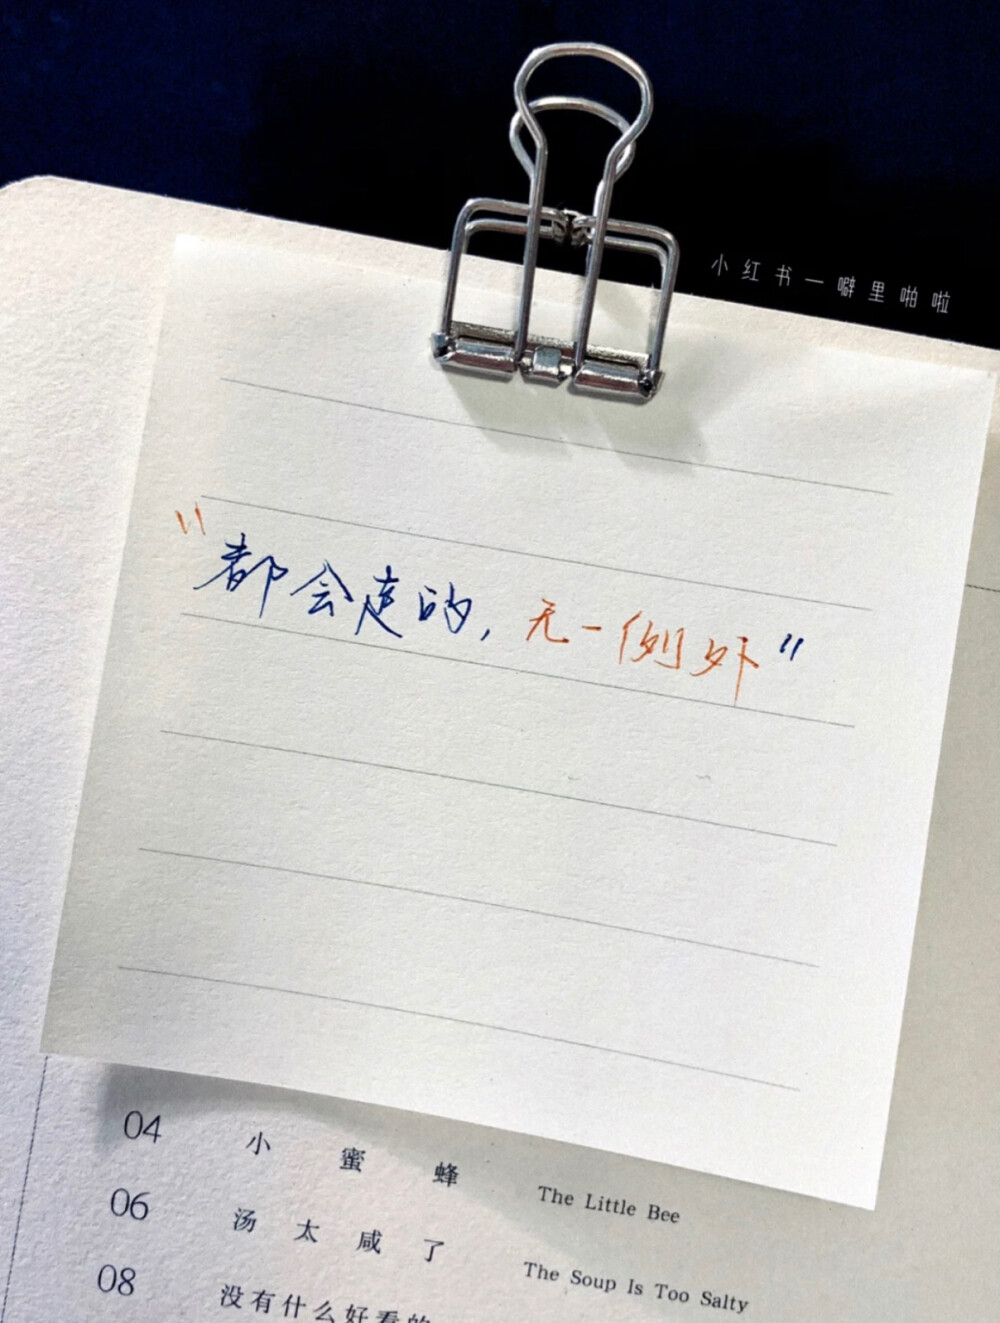 小红书一噼里啪啦
"都会走的，无一例外"
04 小蜜蜂 The Little Bee
06 汤太咸了 The Soup Is Too Salty
08 没有什么好看的